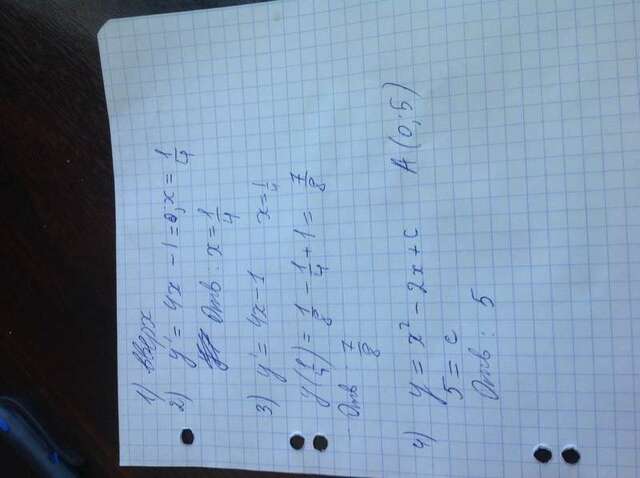 1) вверх
2) y' = 4x - 1 = 0; x = 1/4
Отв: x = 1/4
3) y' = 4x - 1 x = 1/4
y(1/4) = 1/8 - 1/4 + 1 = 7/8
Отв: 7/8
4) y = x² - 2x + c A(0;5)
5 = c
Отв: 5